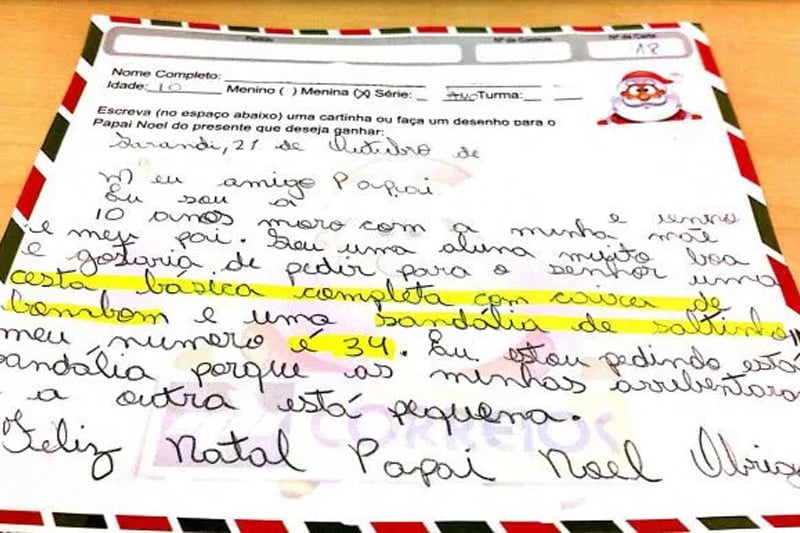 Pedido Nº de Controle Nº da Carta
18
Nome Completo:
Idade: 10 Menino ( ) Menina (X) Série: Turma:
Escreva (no espaço abaixo) uma cartinha ou faça um desenho para o
Papai Noel do presente que deseja ganhar:
Sarandi, 21 de Outubro de
Meu amigo Papai
Eu sou a
10 anos moro com a minha mãe e
e meu pai. Sou uma aluna muito boa
e gostaria de pedir para o senhor uma
cesta básica completa com caixa de
bombom e uma sandália de saltinho
meu numero é 34. Eu estou pedindo
sandália porque as minhas
a outra está pequena.
Feliz Natal Papai Noel
CORREIOS